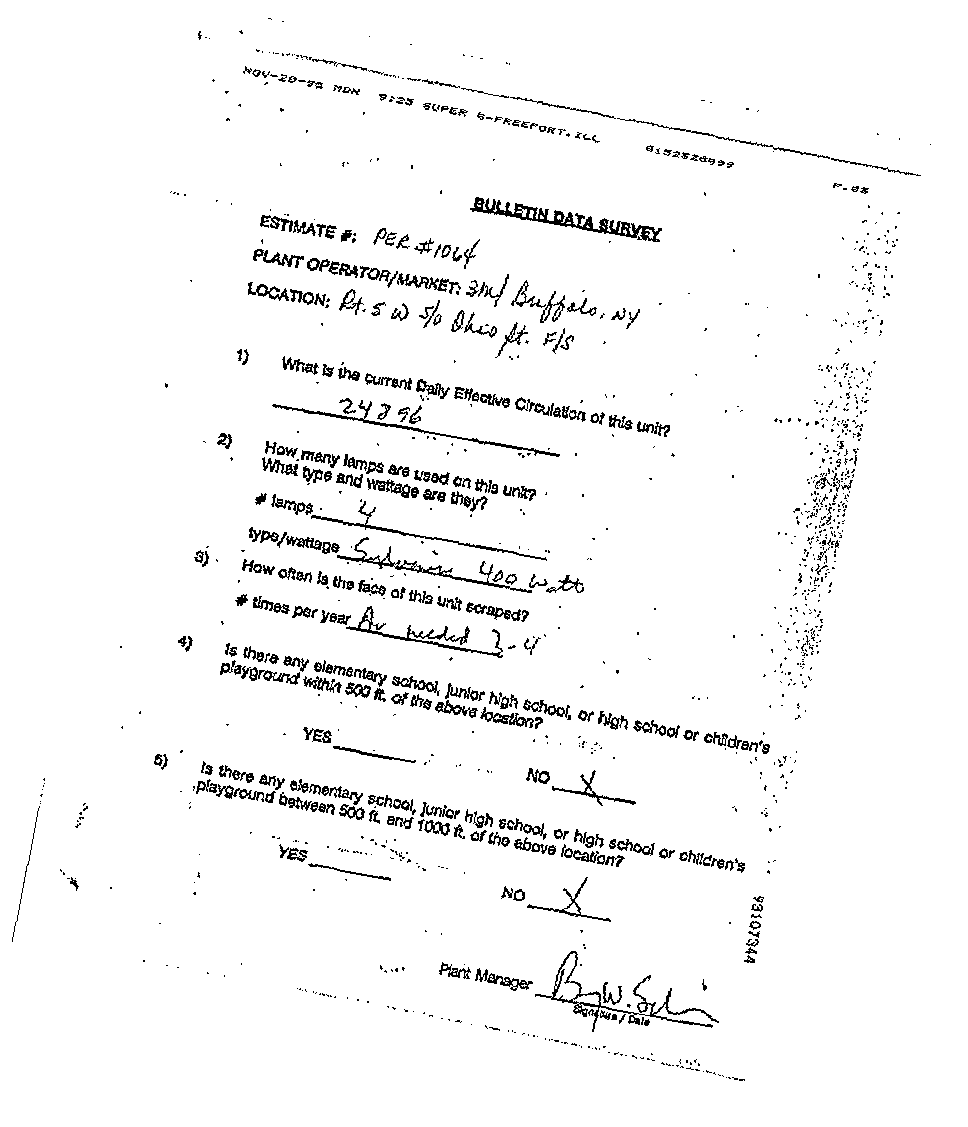 NOV-20-95 MON 9:25 SUPER 8-FREEPORT.ILL 8152328999 P.03
BULLETIN DATA SURVEY
ESTIMATE #: PER #1064
PLANT OPERATOR/MARKET: 3M/ Buffalo, NY
LOCATION: Rt. 5 W S/O Ohio St. F/S
1) What is the current Daily Effective Circulation of this unit?
24896
2) How many lamps are used on this unit?
What type and wattage are they?
# lamps 4
type/wattage Sylvania 400 watt
3) How often is the face of this unit scraped?
# times per year As needed 3-4
4) Is there any elementary school, junior high school, or high school or children's
playground within 500 ft. of the above location?
YES NO X
5) Is there any elementary school, junior high school, or high school or children's
playground between 500 ft. and 1000 ft. of the above location?
YES NO X
93107344
Plant Manager
Signature / Date